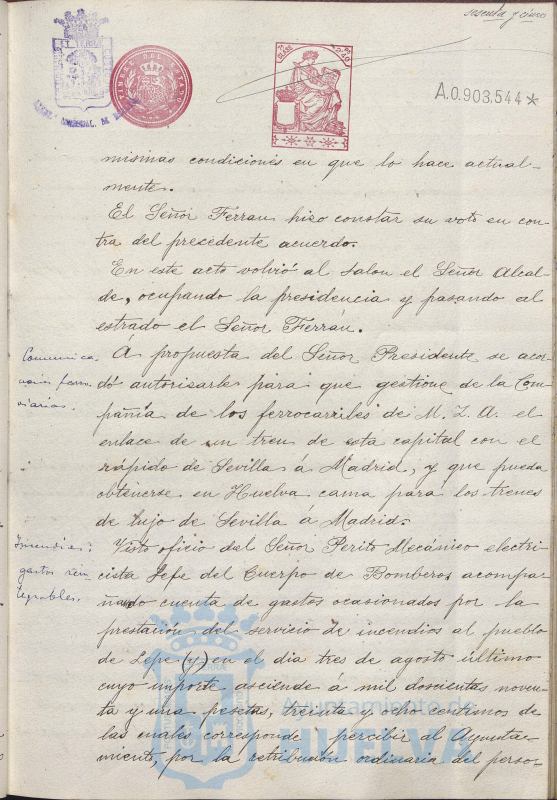 sesenta y cinco
TIMBRE DEL ESTADO
A.0.903,544*
mismas condiciones en que lo hace actual-
mente.
El Señor Ferrán hizo constar su voto en con-
tra del precedente acuerdo.
En este acto volvió al salon el Señor Alcal-
de, ocupando la presidencia y pasando al
estrado el Señor Ferrán.
Comunica-
ciones ferro-
viarias.
Á propuesta del Señor Presidente se acor-
dó autorisarle para que gestione de la Com-
pañia de los ferrocarriles de M. Z. A. el
enlace de un tren de esta capital con el
rápido de Sevilla á Madrid, y que pueda
obtenerse en Huelva cama para los trenes
de lujo de Sevilla á Madrid.
Incendios:
gastos rein-
tegrables.
Visto oficio del Señor Perito Mecánico electri-
cista Jefe del Cuerpo de Bomberos acompa-
ñando cuenta de gastos ocasionados por la
prestación del servicio de incendios al pueblo
de Lepe (y) en el dia tres de agosto último
cuyo importe asciende á mil doscientas noven-
ta y una pesetas, treinta y ocho centimos de
las cuales corresponde percibir al Ayunta-
miento, por la retribución ordinaria del perso-
Ayuntamiento de
HUELVA